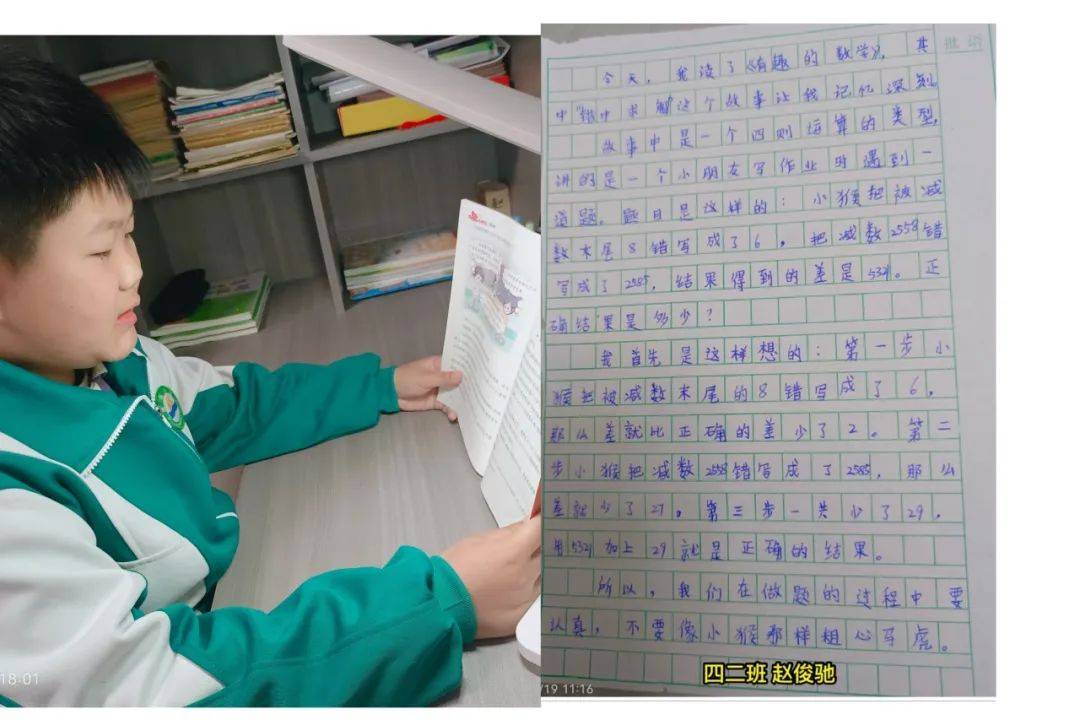 今天，我读了《有趣的数学》，其
中"错中求解"这个故事让我记忆深刻。
故事中是一个四则运算的类型，
讲的是一个小朋友写作业时遇到一
道题。题目是这样的：小猴把被减
数末尾8错写成了6，把减数2558错
写成了2585，结果得到的差是5321。正
确结果是多少？
我首先是这样想的：第一步小
猴把被减数末尾的8错写成了6，
那么差就比正确的差少了2。第二
步小猴把减数2558错写成了2585，那么
差就少了27。第三步一共少了29，
用5321加上29就是正确的结果。
所以，我们在做题的过程中要
认真，不要像小猴那样粗心写虎。
四二班 赵俊驰
18:01
/19 11:16